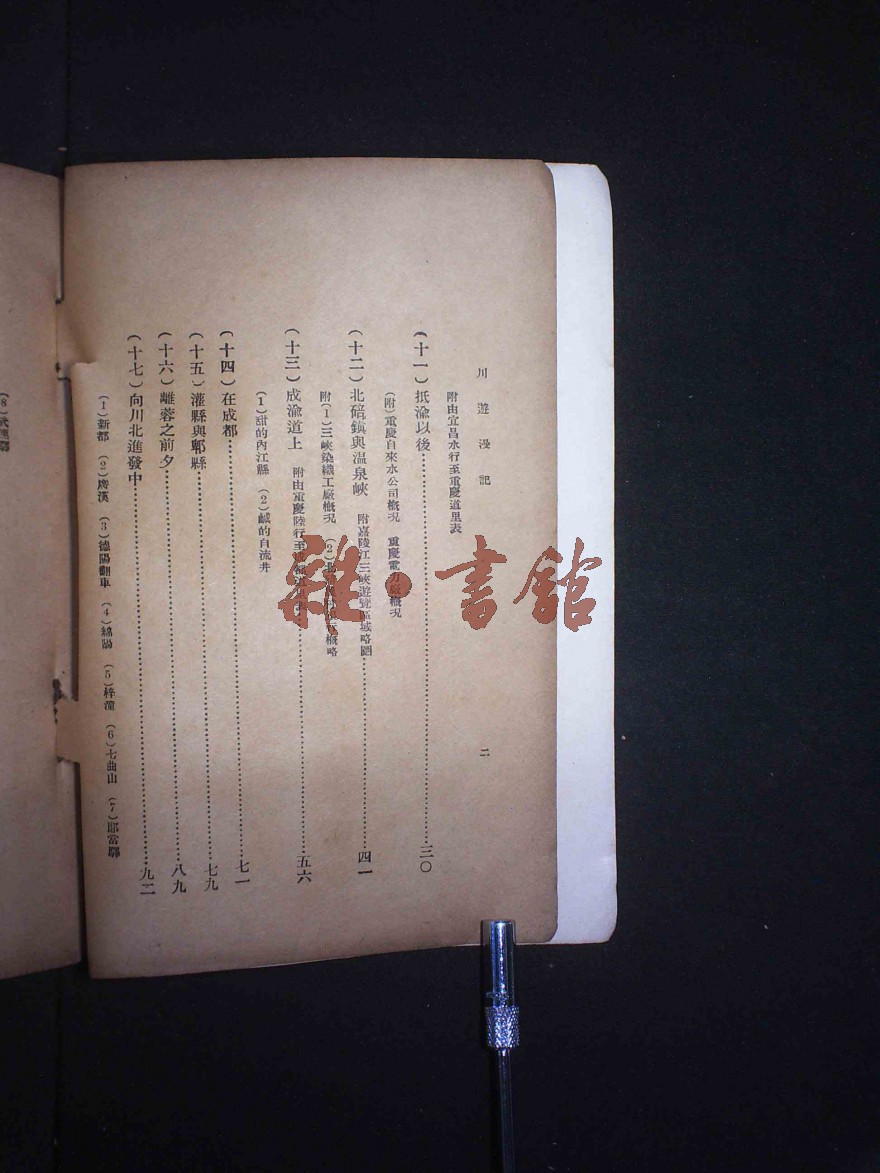 川遊漫記
二
附由宜昌水行至重慶道里表
(十一)抵渝以後……三〇
(附)重慶自來水公司概況 重慶電力廠概況
(十二)北碚鎮與温泉峽 附嘉陵江三峽遊覽區域略圖……四一
附(1)三峽染織工廠概況 (2)
概略
(十三)成渝道上 附由重慶陸行至成都道里表……五六
(1)甜的內江縣 (2)鹹的自流井
(十四)在成都……七一
(十五)灌縣與郫縣……七九
(十六)離蓉之前夕……八九
(十七)向川北進發中……九二
(1)新都 (2)廣漢 (3)德陽翻車 (4)綿陽 (5)梓潼 (6)七曲山 (7)
(8)武連驛
雜·書館